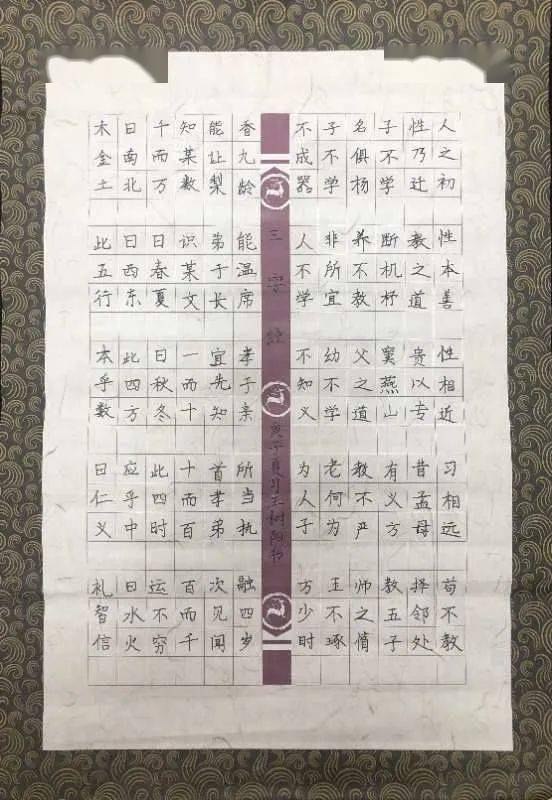 人之初 性本善 性相近 习相远 苟不教
性乃迁 教之道 贵以专 昔孟母 择邻处
子不学 断机杼 窦燕山 有义方 教五子
名俱杨 养不教 父之道 教不严 师之惰
子不学 非所宜 幼不学 老何为 玉不琢
不成器 人不学 不知义 为人子 方少时
三字经 庚子夏月王树阳书
香九龄 能温席 孝于亲 所当执 融四岁
能让梨 弟于长 宜先知 首孝弟 次见闻
知某数 识某文 一而十 十而百 百而千
千而万 曰春夏 曰秋冬 此四时 运不穷
曰南北 曰西东 此四方 应乎中 曰水火
木金土 此五行 本乎数 曰仁义 礼智信